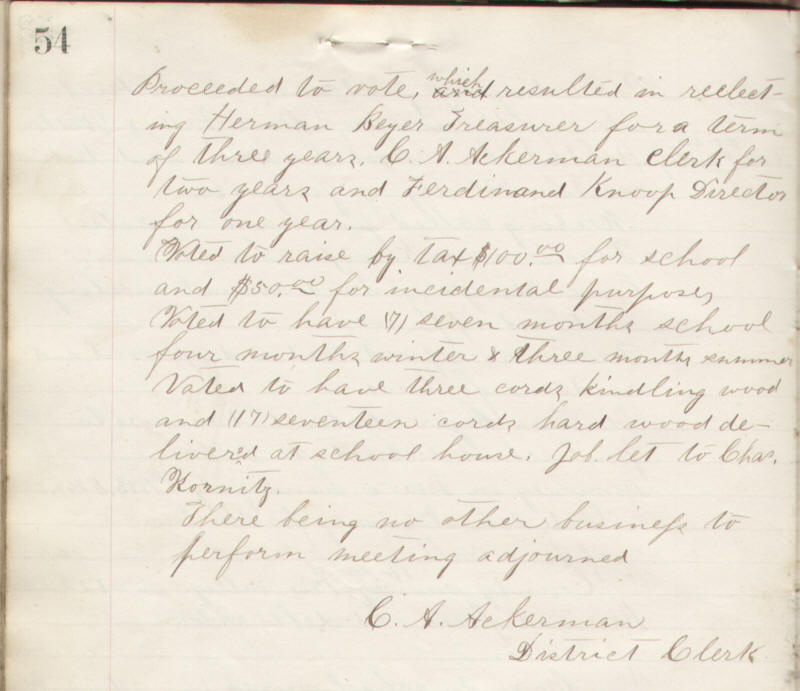 54
Proceeded to vote, which resulted in reelect-
ing Herman Beyer Treasurer for a term
of three years. C. A. Ackerman Clerk for
two years and Ferdinand Knoop Director
for one year.
Voted to raise by tax $100.00 for school
and $50.00 for incidental purposes
Voted to have (7) seven months school
four months winter & three months summer
Voted to have three cords kindling wood
and (17) seventeen cords hard wood de-
livered at school house. Job let to Chas.
Kornitz.
There being no other business to
perform meeting adjourned
C. A. Ackerman
District Clerk